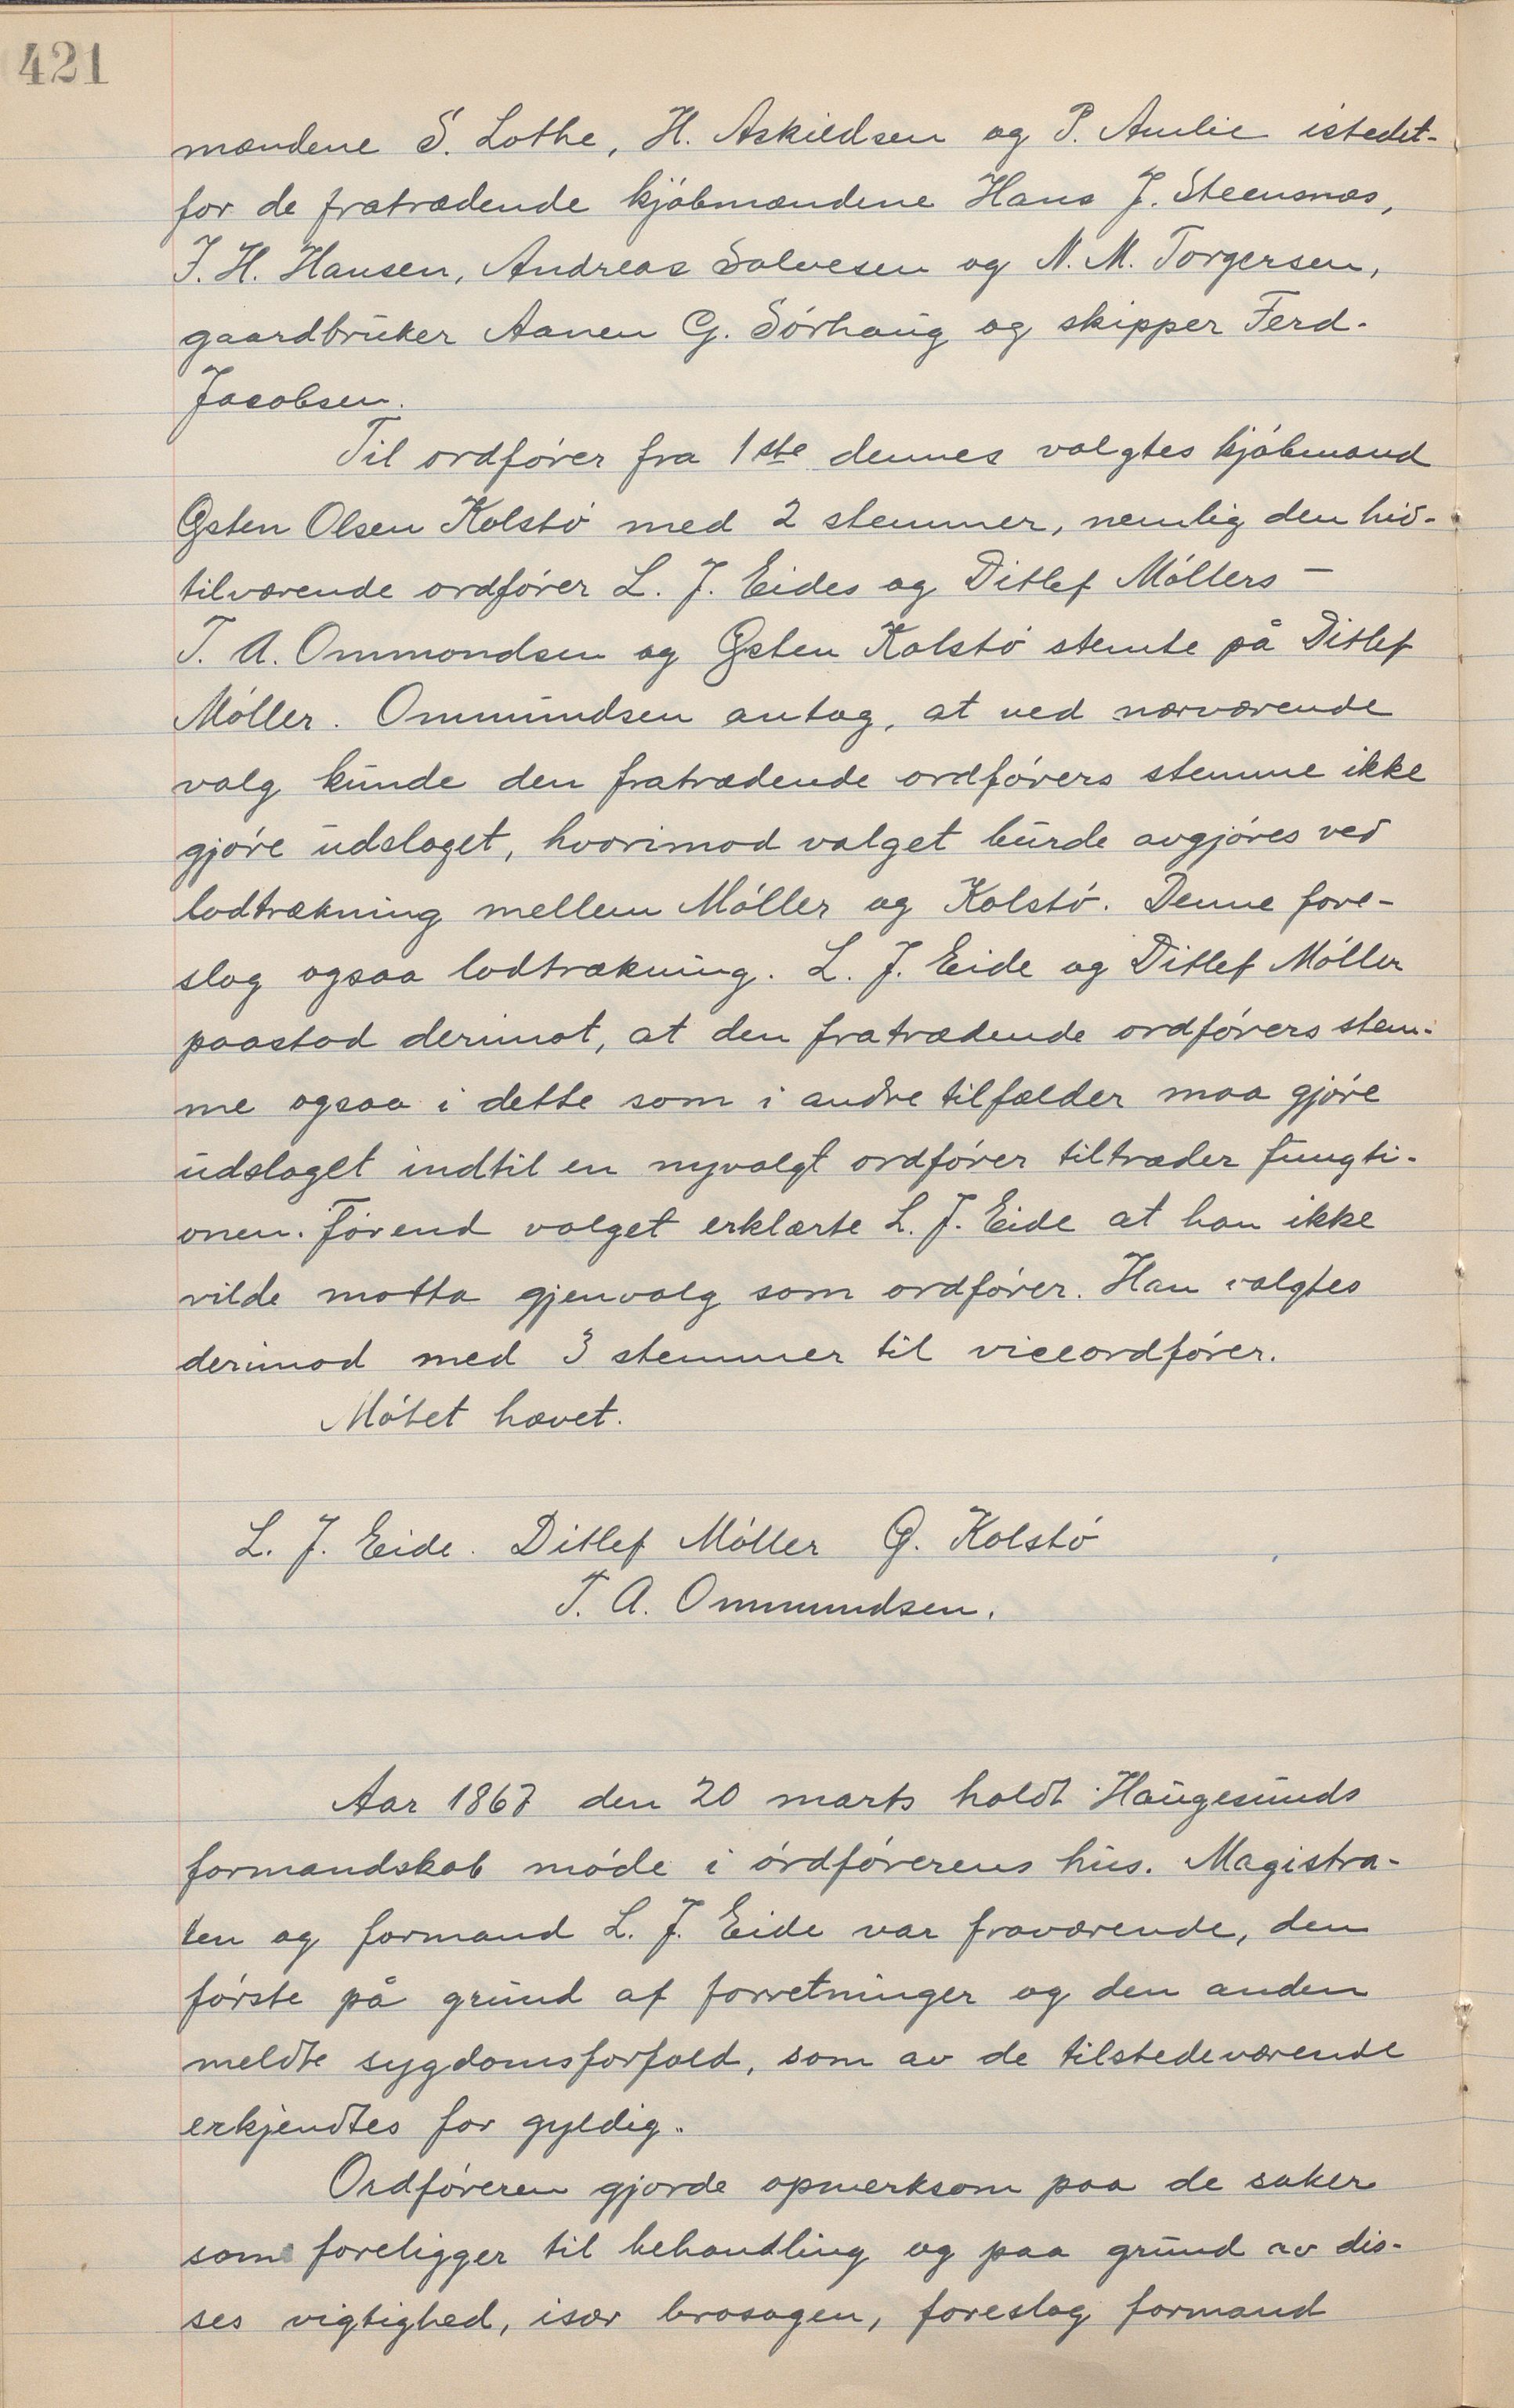 421
mændene S. Lothe, H. Askildsen og P. Amlie istedet-
for de fratrædende kjöbmændene Hans J. Steensnæs,
J. H. Hansen, Andreas Salvesen og N. M. Torgersen,
gaardbruker Aanen G. Sörhaug og skipper Ferd.
Jacobsen.
Til ordförer fra 1ste dennes valgtes kjöbmand
Gsten Olsen Kolstö med 2 stemmer, nemlig den hid-
tilværende ordförer L. J. Eides og Ditlef Möllers –
T. A. Ommondsen og Gsten Kolstö stemte på Ditlef
Möller. Ommundsen antog, at ved nærværende
valg kunde den fratrædende ordförers stemme ikke
gjöre udslaget, hvorimod valget burde avgjöres ved
lodtrækning mellem Möller og Kolstö. Denne fore-
slog ogsaa lodtrækning. L. J. Eide og Ditlef Möller
paastod derimot, at den fratrædende ordförers stem-
me ogsaa i dette som i andre tilfælder maa gjöre
udslaget indtil en nyvalgt ordförer tiltræder fungti-
onen. Förend valget erklærte L. J. Eide at han ikke
vilde motta gjenvalg som ordförer. Han valgtes
derimod med 3 stemmer til viceordförer.
Mötet hævet.
L. J. Eide. Ditlef Möller G. Kolstö
T. A. Ommundsen.
Aar 1867 den 20 marts holdt Haugesunds
formandskab möde i ördförerens hus. Magistra-
ten og formand L. J. Eide var fraværende, den
förste på grund af forretninger og den anden
meldte sygdomsforfald, som av de tilstedeværende
erkjendtes for gyldig.
Ordföreren gjorde opmerksom paa de saker
som foreligger til behandling og paa grund av dis-
ses vigtighed, især brosagen, foreslog formand